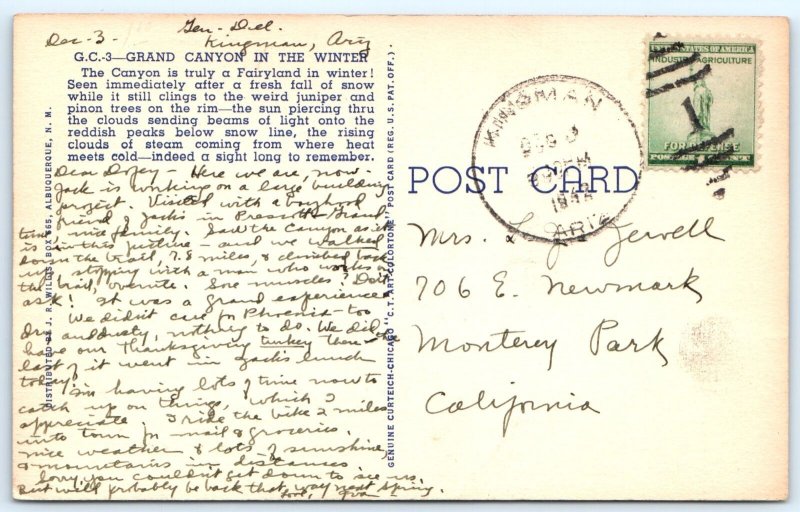 Dec-3-
Gen-Del.
Kingman, Ariz
G.C.-3—GRAND CANYON IN THE WINTER
The Canyon is truly a Fairyland in winter!
Seen immediately after a fresh fall of snow
while it still clings to the weird juniper and
pinon trees on the rim—the sun piercing thru
the clouds sending beams of light onto the
reddish peaks below snow line, the rising
clouds of steam coming from where heat
meets cold—indeed a sight long to remember.
Dear Dopey- Here we are, now-
Jack is working on a large building
project. Visited with a boyhood
friend of Jack's in Prescott - Grand
time nice family. Saw the Canyon as it
is in this picture - and we walked
down the trail, 7.8 miles, & climbed back
up, stopping with a man who works on
the trail, overnite. Sore muscles? Don't
ask! It was a grand experience
We didn't care for Phoenix - too
dry and dusty, nothing to do. We did
have our Thanksgiving turkey there - the
last of it went in Jack's lunch
today.
I'm having lots of time now to
catch up on things, which I
appreciate. I ride the bike 2 miles
into town for mail & groceries.
nice weather & lots of sunshine,
& mountains in distances
Sorry you couldn't get down to see us,
But will probably be back that way next Spring.
Love, Eva
DISTRIBUTED BY J. R. WILLIS, BOX 665, ALBUQUERQUE, N. M.
GENUINE CURTEICH-CHICAGO "C.T. ART-COLORTONE" POST CARD (REG. U.S. PAT. OFF.)
POST CARD
KINGMAN
DEC 3
PM
ARIZ
UNITED STATES OF AMERICA
INDUSTRY AGRICULTURE
1
FOR DEFENSE
POSTAGE 1 CENT
Mrs. L. J. Jewell
706 E. Newmark
Monterey Park
California